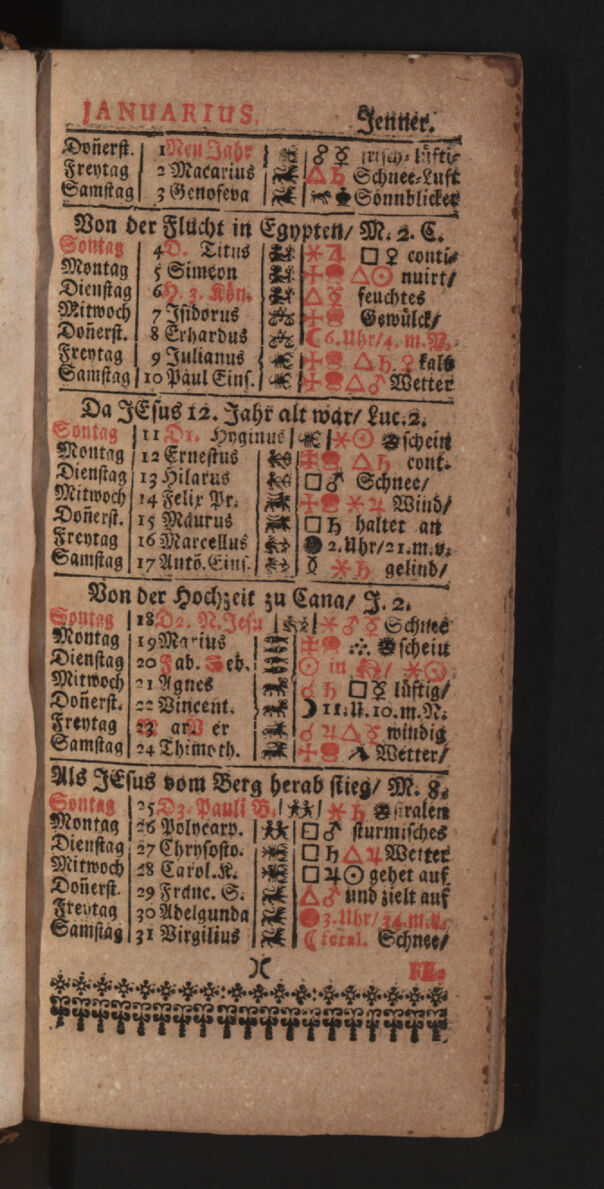 JANUARIUS, Jenner.
Doñerst. 1 Neu Jahr ☍ ☿ frisch-lüfti-
Freytag 2 Macarius △ ♄ Schnee-Luft
Samstag 3 Genofeva Sonnblicket
Von der Flucht in Egypten/ M. 2. C.
Sontag 4 D. Titus ✶ ♃ □ ♀ conti-
Montag 5 Simeon △ ☉ nuirt/
Dienstag 6 H. 3. Kön. △ ☿ feuchtes
Mitwoch 7 Isidorus Gewülck/
Doñerst. 8 Erhardus ☾ 6. Uhr/4. m. V.
Freytag 9 Julianus △ ♄. ♀ kalt
Samstag 10 Paul Eins. △ ♂ Wetter
Da JEsus 12. Jahr alt war/ Luc. 2.
Sontag 11 D1. Hyginus ✶ ☉ schein
Montag 12 Ernestus △ ♄ cont.
Dienstag 13 Hilarus □ ♂ Schnee/
Mitwoch 14 Felix Pr. ✶ ♃ Wind/
Doñerst. 15 Maurus □ ♄ haltet an
Freytag 16 Marcellus ● 2. Uhr/21. m. v.
Samstag 17 Antõ. Eins. ☿ ✶ ♄ gelind/
Von der Hochzeit zu Cana/ J. 2.
Sontag 18 D2. N. Jesu ✶ ♂ ☿ Schnee
Montag 19 Marius schein
Dienstag 20 Fab. Seb. ☉ in / ✶ ☉
Mitwoch 21 Agnes ☌ ♄ □ ☿ lüftig/
Doñerst. 22 Vincent. ☽ 11. U. 10. m. N.
Freytag 23 ☌ ♃ △ ☿ windig
Samstag 24 Thimoth. Wetter/
Als JEsus vom Berg herab stieg/ M. 8.
Sontag 25 D3. Pauli B. ✶ ♄
Montag 26 Polycarp. □ ♂ sturmisches
Dienstag 27 Chrysosto. □ ♄ △ ♃ Wetter
Mitwoch 28 Carol. K. □ ♃ ☉ gehet auf
Doñerst. 29 Franc. S. △ ♂ und zielt auf
Freytag 30 Adelgunda 3. Uhr/ 34. m. v.
Samstag 31 Virgilius ☾ feral. Schnee/
FE-